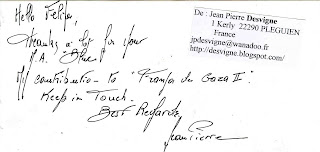 Hello Felipe,
Thanks a lot for your
A. "Blue"
My contribution to "Franja de Gaza II".
Keep in Touch.
Best Regards
Jean Pierre
De : Jean Pierre Desvigne
1 Kerly 22290 PLEGUIEN
France
jpdesvigne@wanadoo.fr
http://desvigne.blogspot.com/